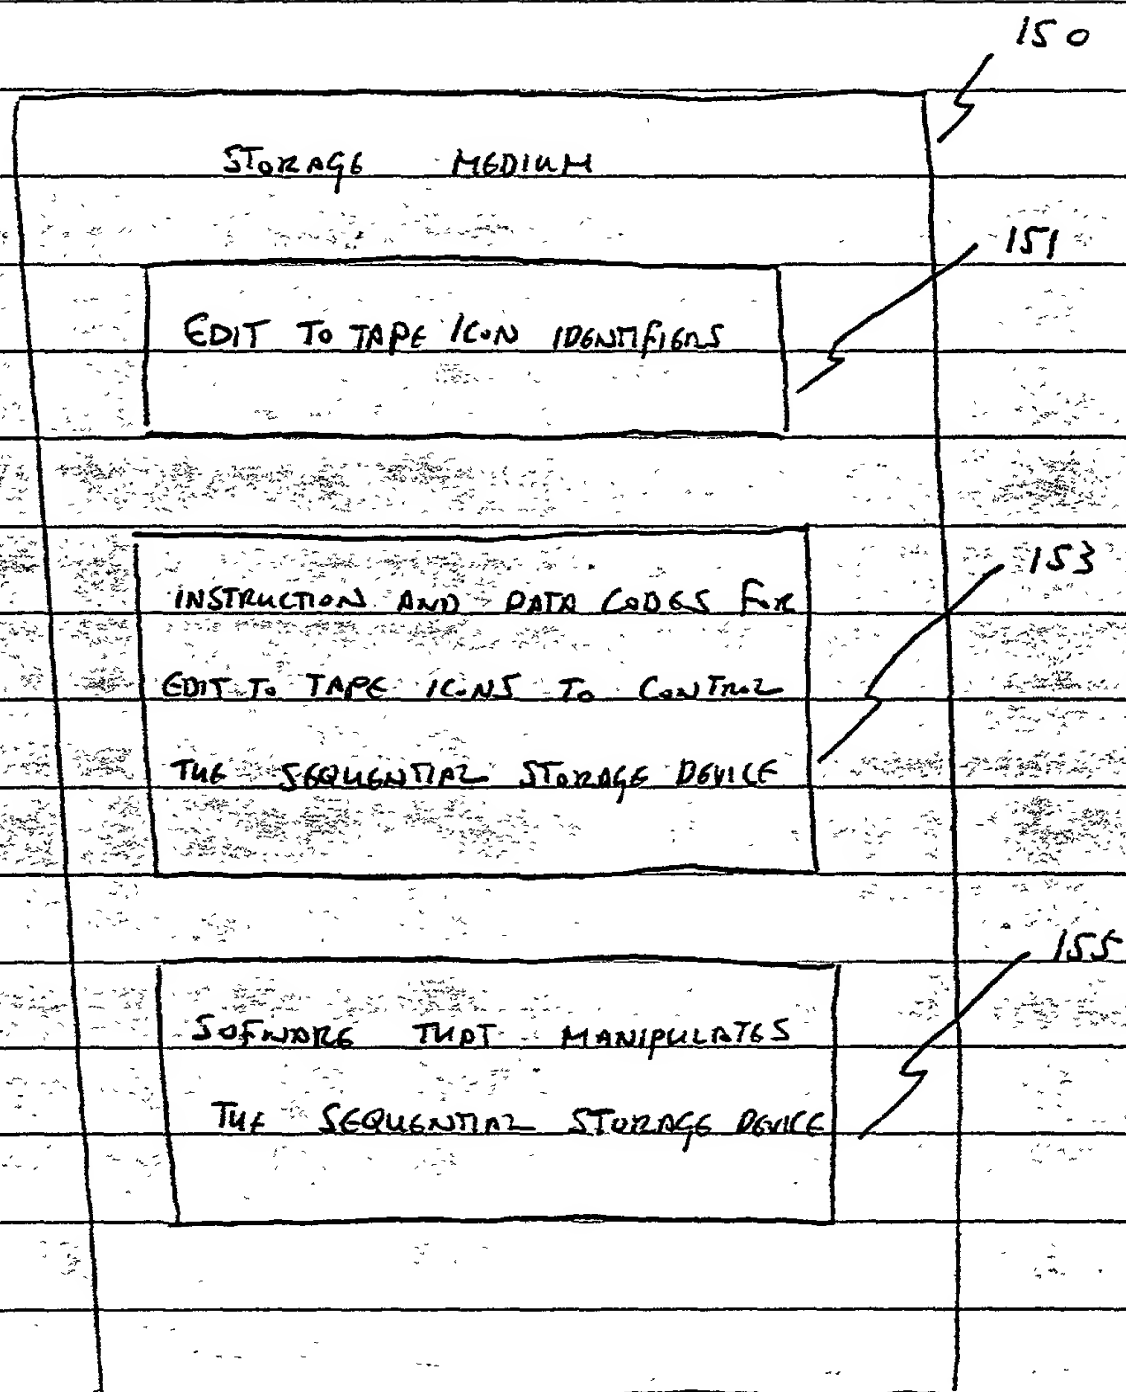 150
STORAGE MEDIUM
151
EDIT TO TAPE ICON IDENTIFIERS
153
INSTRUCTION AND DATA CODES FOR
EDIT TO TAPE ICONS TO CONTROL
THE SEQUENTIAL STORAGE DEVICE
155
SOFWARE THAT MANIPULATES
THE SEQUENTIAL STORAGE DEVICE